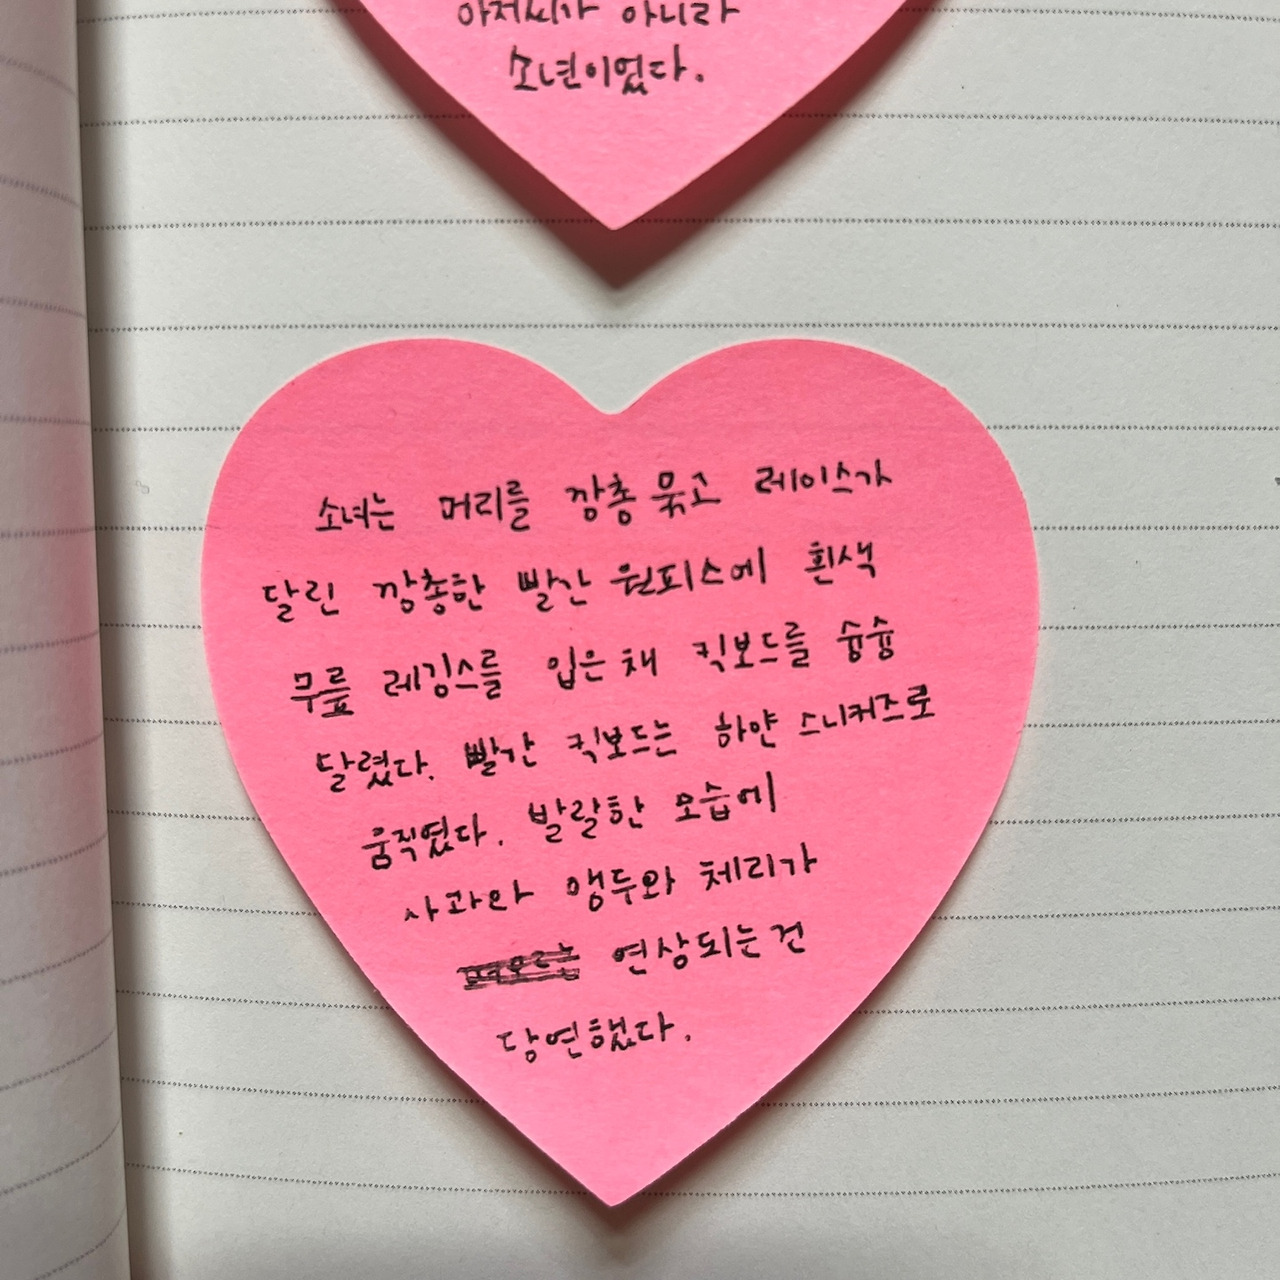 아저씨가 아니라
소년이었다.
소녀는 머리를 깡총 묶고 레이스가
달린 깡총한 빨간 원피스에 흰색
무릎 레깅스를 입은 채 킥보드를 슝슝
달렸다. 빨간 킥보드는 하얀 스니커즈로
움직였다. 발랄한 모습에
사과와 앵두와 체리가
연상되는 건
당연했다.